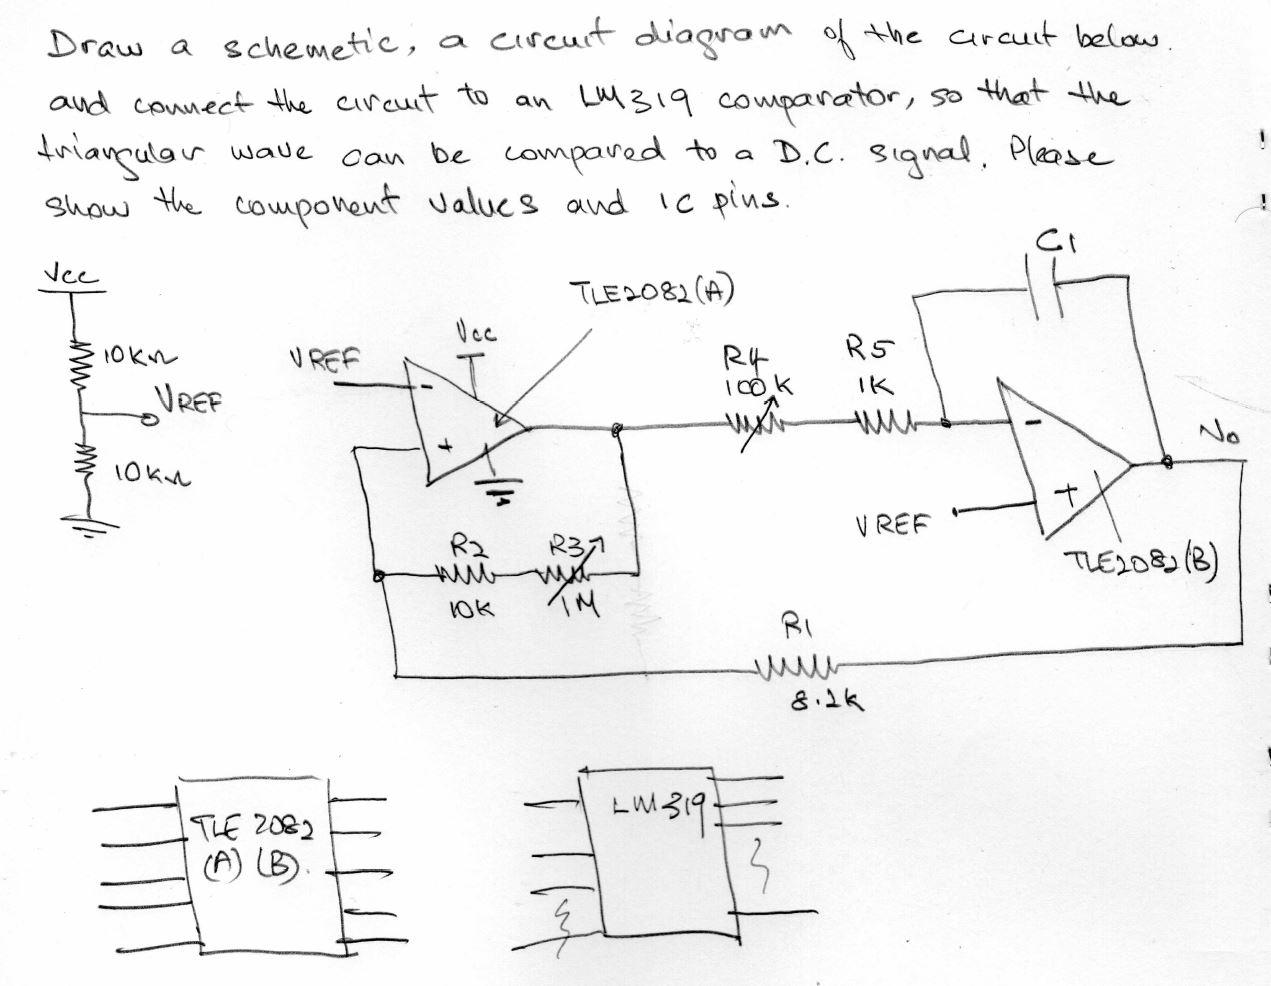 Draw a schemetic, a circuit diagram of the circuit below.
and connect the circuit to an LM319 comparator, so that the
triangular wave can be compared to a D.C. signal. Please
show the component values and IC pins.
Vcc
10KΩ
VREF
10KΩ
VREF
Vcc
TLE2082(A)
-
+
R2
10K
R3
1M
R4
100K
R5
1K
C1
-
+
Vo
VREF
TLE2082(B)
R1
8.2K
TLE 2082
(A) (B).
LM319